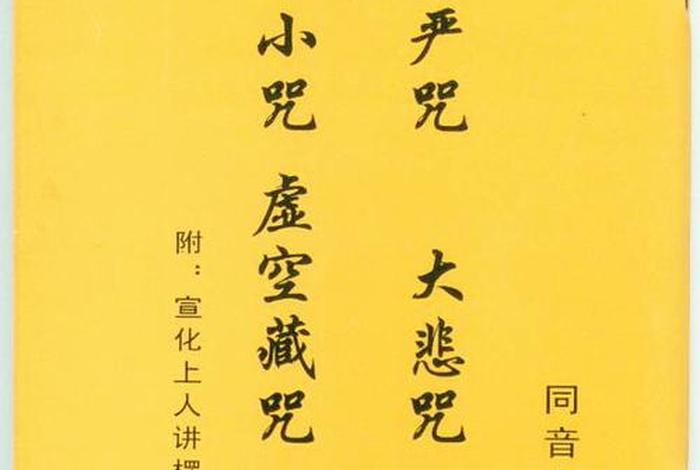 同音
严咒 大悲咒
小咒 虚空藏咒
附：宣化上人讲楞